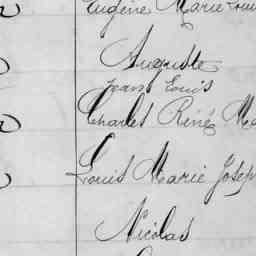 Eugène Marie Loui
Auguste
Jean Louis
Charles Réné Ma
Louis Marie Josep
Nicolas